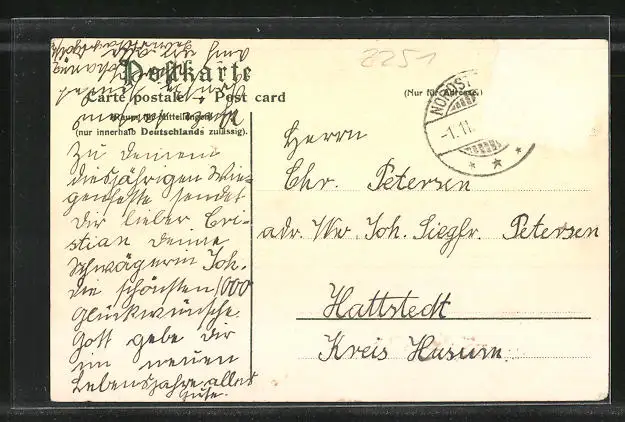 8251
Postkarte
Carte postale — Post card
(Nur für Adresse.)
(nur innerhalb Deutschlands zulässig).
NORDST
-1.11.
Zu Deinem
diesjährigen Wie-
genfeste sendet
Dir lieber Cri-
stian Deine
Schwägerin Joh.
die schönsten 1000
Glückwünsche
Gott gebe Dir
im neuen
Lebensjahre alles
Gute.
Herrn
Chr. Petersen
adr. Ww. Joh. Siegfr. Petersen
Hattstedt
Kreis Husum.